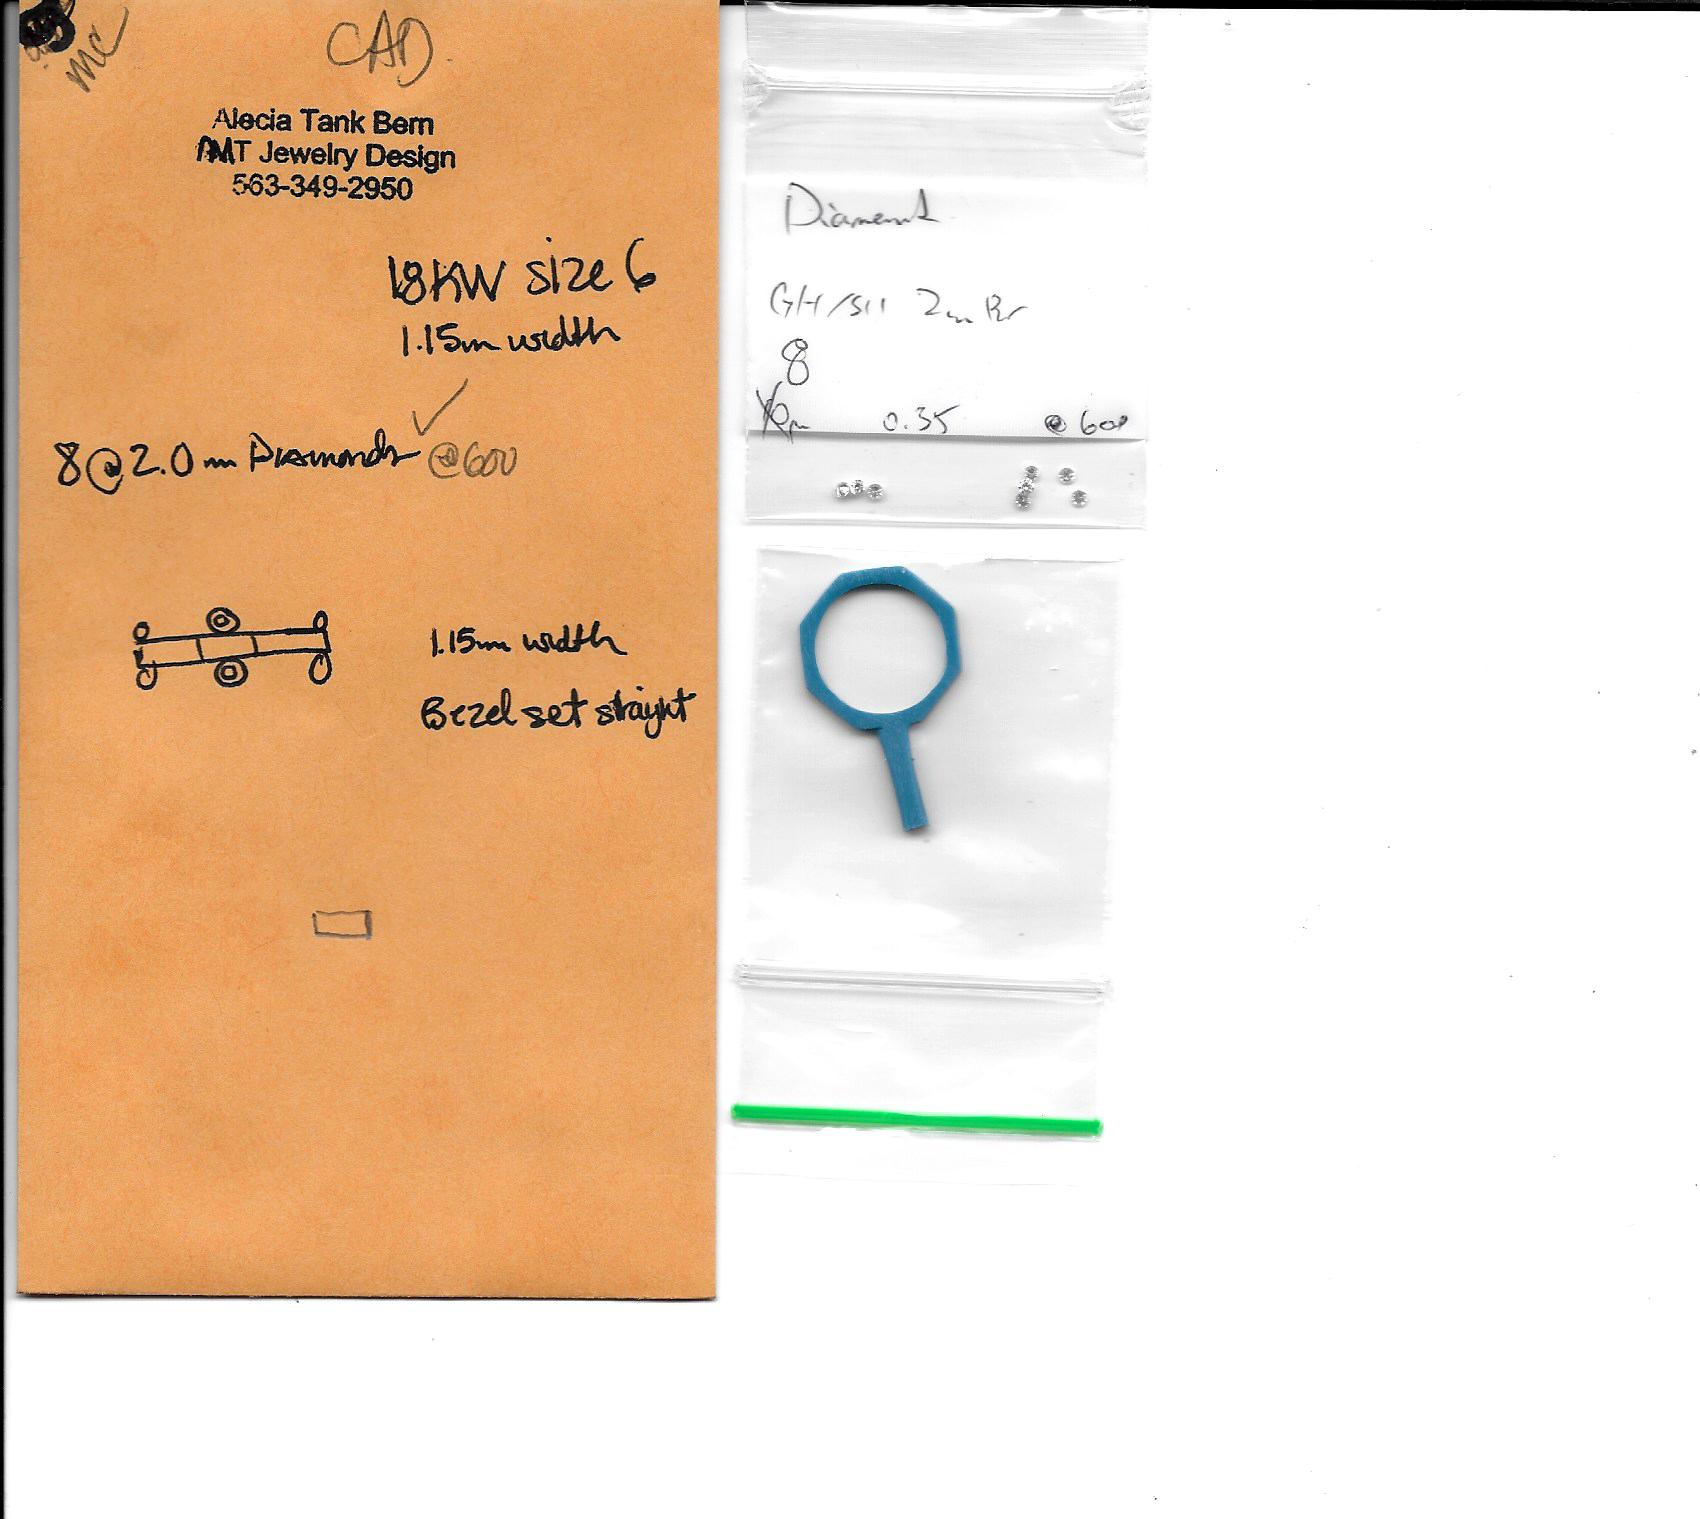 mc
CAD
Alecia Tank Bern
AMT Jewelry Design
563-349-2950
18KW size 6
1.15m width
8@2.0mm Diamonds @600
1.15mm width
Bezel set straight
Diamond
GH/SI1 2mm Rr
8
0.35 @600